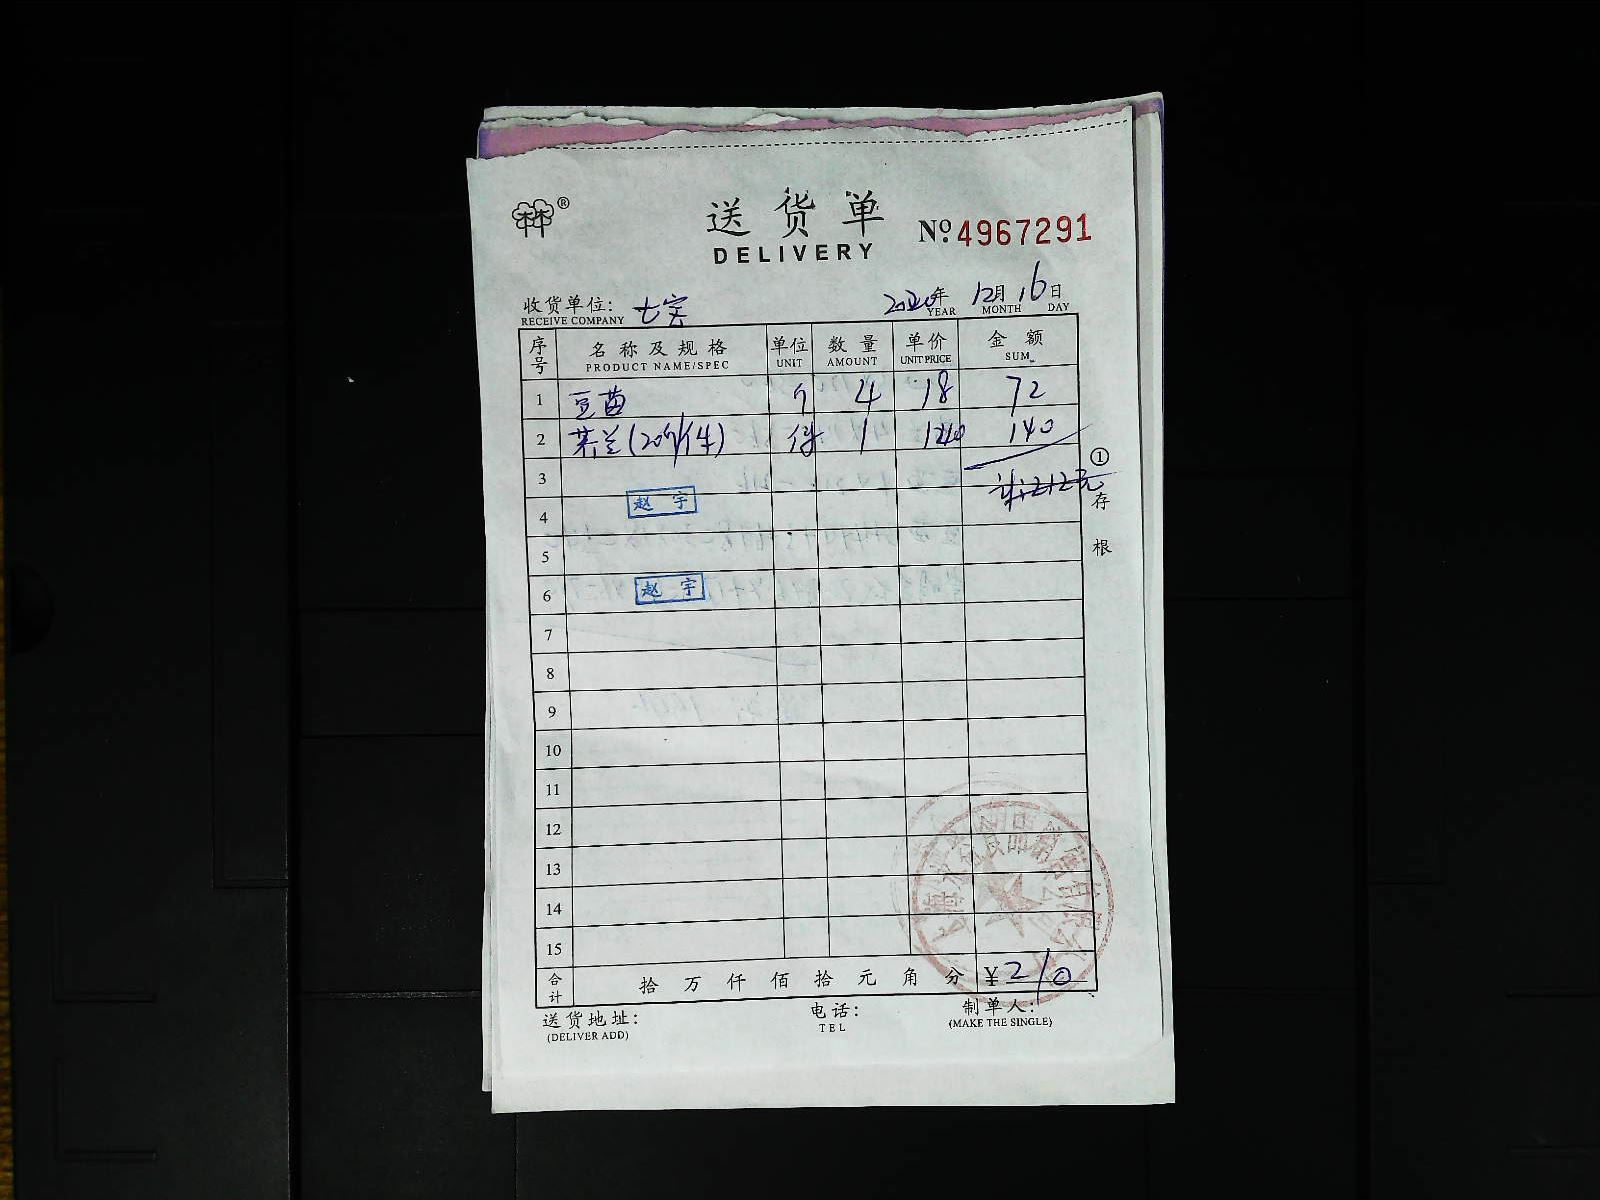 林林®
送货单
DELIVERY
№ 4967291
收货单位: 七宝
RECEIVE COMPANY
2020年 12月 16日
YEAR MONTH DAY
序号 名称及规格 单位 数量 单价 金额
PRODUCT NAME/SPEC UNIT AMOUNT UNIT PRICE SUM
1 豆苗 斤 4 18 72
2 (20斤/件) 件 1 140 140
3 计:212元
4 赵宇
5
6 赵宇
7
8
9
10
11
12
13
14
15
合计 拾 万 仟 佰 拾 元 角 分 ¥210
①存根
送货地址:
(DELIVER ADD)
电话:
TEL
制单人:
(MAKE THE SINGLE)